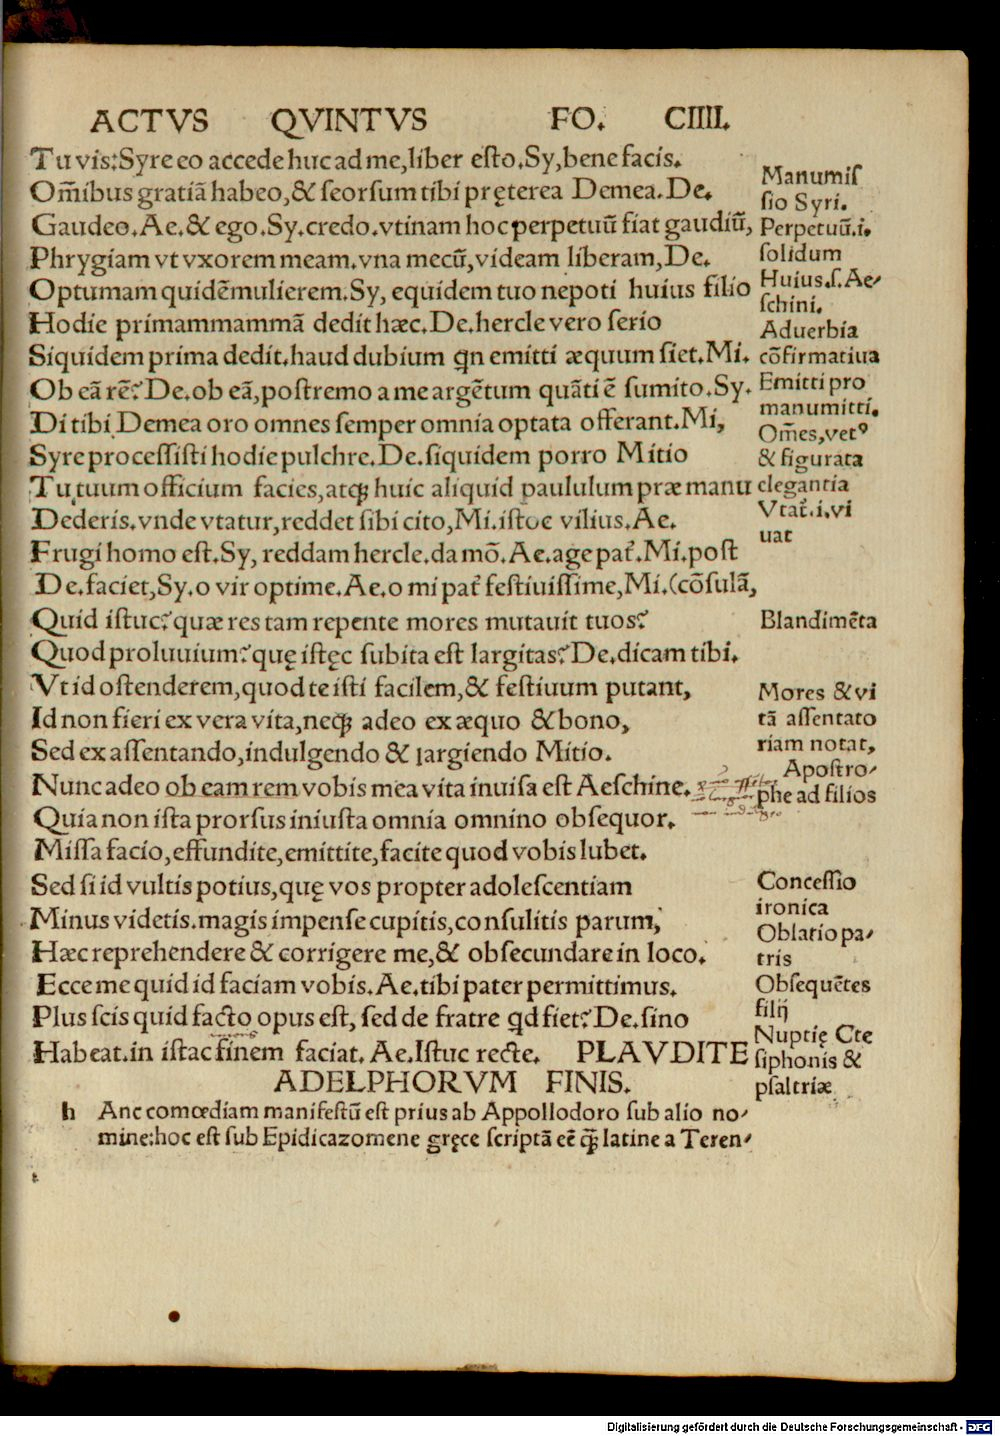 ACTVS QVINTVS FO. CIIII.
Tu vis: Syre eo accede huc ad me, liber esto. Sy, bene facis.
Om̃ibus gratiā habeo, & seorsum tibi pręterea Demea. De.
Gaudeo. Ae. & ego. Sy. credo. vtinam hoc perpetuū fiat gaudiū,
Phrygiam vt vxorem meam. vna mecū, videam liberam, De.
Optumam quidē mulierem. Sy, equidem tuo nepoti huius filio
Hodie primam mammā dedit hæc. De. hercle vero serio
Siquidem prima dedit. haud dubium qn emitti æquum siet. Mi.
Ob eā rē? De. ob eā, postremo a me argētum quāti ē sumito. Sy.
Di tibi Demea oro omnes semper omnia optata offerant. Mi,
Syre processisti hodie pulchre. De. siquidem porro Mitio
Tu tuum officium facies, atq; huic aliquid paululum præ manu
Dederis. vnde vtatur, reddet sibi cito, Mi. istoc vilius. Ae.
Frugi homo est. Sy, reddam hercle. da mō. Ae. age pat̃. Mi. post
De. faciet, Sy. o vir optime. Ae. o mi pat̃ festiuissime, Mi. (cōsulā,
Quid istuc? quæ res tam repente mores mutauit tuos?
Quod proluuium? quę istęc subita est largitas? De. dicam tibi.
Vt id ostenderem, quod te isti facilem, & festiuum putant,
Id non fieri ex vera vita, neq; adeo ex æquo & bono,
Sed ex assentando, indulgendo & largiendo Mitio.
Nunc adeo ob eam rem vobis mea vita inuisa est Aeschine.
Quia non ista prorsus iniusta omnia omnino obsequor.
Missa facio, effundite, emittite, facite quod vobis lubet.
Sed si id vultis potius, quę vos propter adolescentiam
Minus videtis. magis impense cupitis, consulitis parum,
Hæc reprehendere & corrigere me, & obsecundare in loco.
Ecce me quid id faciam vobis. Ae. tibi pater permittimus.
Plus scis quid facto opus est, sed de fratre qd fiet? De. sino
Habeat. in istac finem faciat. Ae. Istuc recte. PLAVDITE
ADELPHORVM FINIS.
h Anc comœdiam manifestū est prius ab Appollodoro sub alio no-
mine: hoc est sub Epidicazomene gręce scriptā eē q̄ latine a Teren-
Manumis
sio Syri.
Perpetuū. i.
solidum
Huius. s. Ae-
schini.
Aduerbia
cōfirmatiua
Emitti pro
manumitti.
Om̃es, vetꝰ
& figurata
elegantia
Vtat̃. i. vi
uat
Blandimēta
Mores & vi
tā assentato
riam notat,
Apostro-
phe ad filios
Concessio
ironica
Oblatio pa-
tris
Obsequētes
filij
Nuptię Cte
siphonis &
psaltriæ
Digitalisierung gefördert durch die Deutsche Forschungsgemeinschaft - DFG